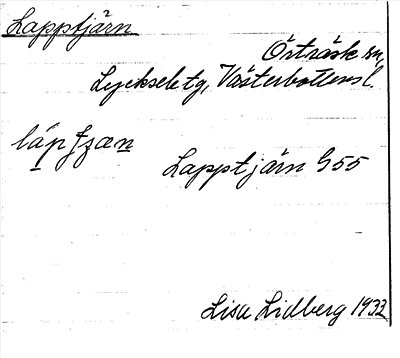 Lapptjärn
Örträsk sn,
Lycksele tg, Västerbottens l.
Lapptjärn G55
Lisa Lidberg 1933